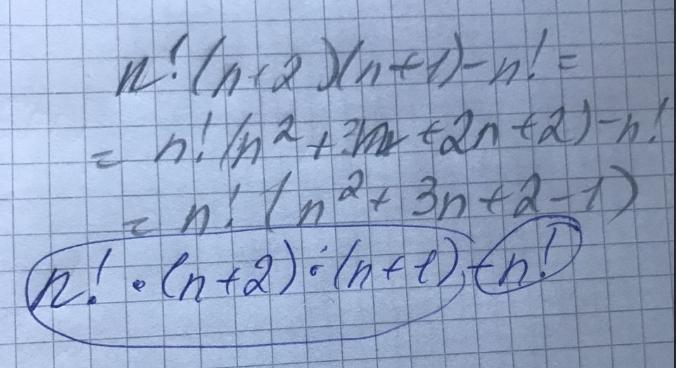 n!(n+2)(n+1)-n! =
= n!(n²+n+2n+2)-n!
= n!(n²+3n+2-1)
n!·(n+2)·(n+1)-n!